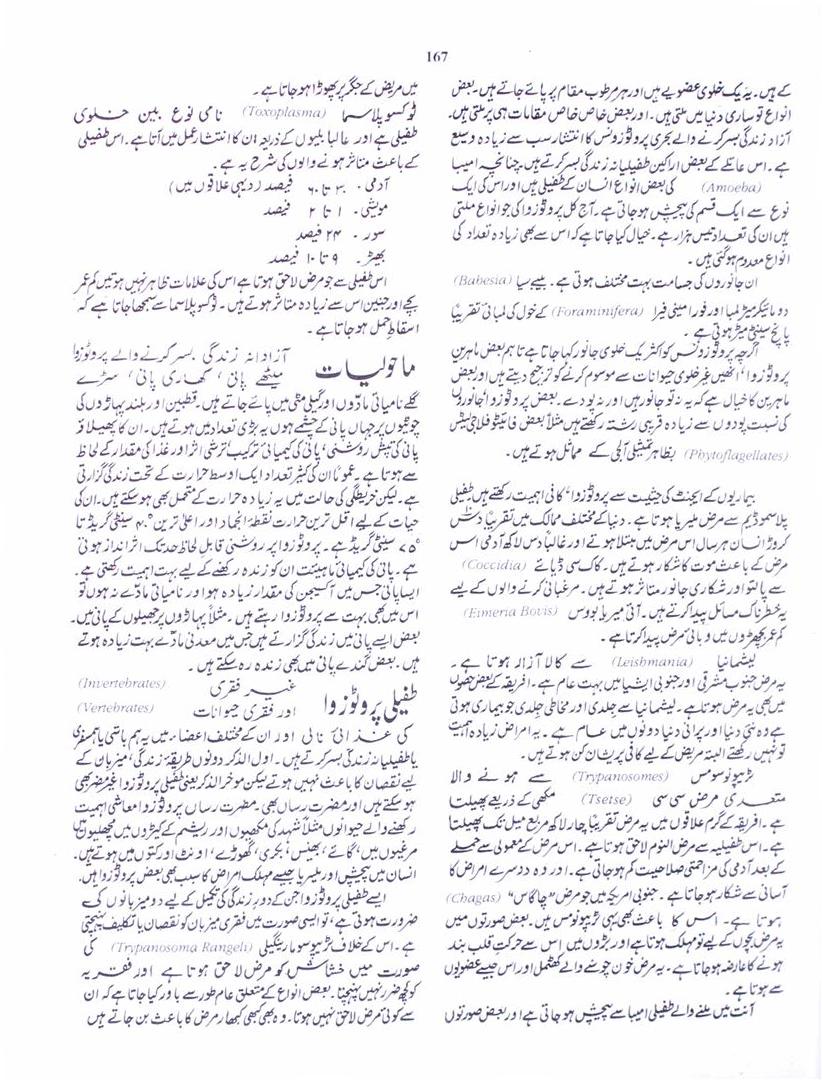 167
کے ہیں۔ یہ یک خلوی عضویے ہیں اور ہر مرطوب مقام پر پائے جاتے ہیں۔ بعض
انواع تو ساری دنیا میں ملتی ہیں۔ اور بعض خاص خاص مقامات ہی پر ملتی ہیں۔
آزاد زندگی بسر کرنے والے بحری پروٹوزونس کا انتشار سب سے زیادہ وسیع
ہے۔ اس عائلے کے بعض اراکین طفیلیانہ زندگی بسر کرتے ہیں۔ چنانچہ امیبا
(Amoeba) کی بعض انواع انسان کے طفیلی ہیں اور اس کی ایک
نوع سے ایک قسم کی پیچش ہو جاتی ہے۔ آج کل پروٹوزوا کی جو انواع ملتی
ہیں ان کی تعداد تیس ہزار ہے۔ خیال کیا جاتا ہے کہ اس سے بھی زیادہ تعداد کی
انواع معدوم ہو گئی ہیں۔
ان جانوروں کی جسامت بہت مختلف ہوتی ہے۔ بیبے سیا (Babesia)
دو مائیکر میٹر لمبا اور فورامینی فیرا (Foraminifera) کے خول کی لمبائی تقریباً
پانچ سینٹی میٹر ہوتی ہے۔
اگرچہ پروٹوزونس کو اکثر یک خلوی جانور کہا جاتا ہے تاہم بعض ماہرین
پروٹوزوا، انھیں غیر خلوی حیوانات سے موسوم کرنے کو ترجیح دیتے ہیں اور بعض
ماہرین کا خیال ہے کہ یہ نہ تو جانور ہیں اور نہ پودے۔ بعض پروٹوزوا جانوروں
کی نسبت پودوں سے زیادہ قریبی رشتہ رکھتے ہیں مثلاً بعض فائیٹو فلاجی لیٹس
(Phytoflagellates) بظاہر تمثیلی آلجی کے مماثل ہوتے ہیں۔
بیماریوں کے ایجنٹ کی حیثیت سے پروٹوزوا، کافی اہمیت رکھتے ہیں طفیلی
پلاسموڈیم سے مرض ملیریا ہوتا ہے۔ دنیا کے مختلف ممالک میں تقریباً دس
کروڑ انسان ہر سال اس مرض میں مبتلا ہوتے اور غالباً دس لاکھ آدمی اس
مرض کے باعث موت کا شکار ہوتے ہیں۔ کاک سی ڈیا نے (Coccidia)
سے پالتو اور شکاری جانور متاثر ہوتے ہیں۔ مرغبانی کرنے والوں کے لیے
یہ خطرناک مسائل پیدا کرتے ہیں۔ آئی میریا بووس (Eimeria Bovis)
کم عمر بچھڑوں میں وبائی مرض پیدا کرتا ہے۔
لیشمانیا (Leishmania) سے کالا آزار ہوتا ہے۔
یہ مرض جنوب مشرقی اور جنوبی ایشیا میں بہت عام ہے۔ افریقہ کے بعض حصوں
میں بھی یہ مرض ہوتا ہے۔ لیشمانیا سے جلدی اور مخاطی جلدی جو بیماری ہوتی
ہے وہ نئی دنیا اور پرانی دنیا دونوں میں عام ہے۔ یہ امراض زیادہ اہمیت
تو نہیں رکھتے البتہ مریض کے لیے کافی پریشان کن ہوتے ہیں۔
ٹریپونوسومس (Trypanosomes) سے ہونے والا
متعدی مرض سی سی (Tsetse) مکھی کے ذریعے پھیلتا
ہے۔ افریقہ کے گرم علاقوں میں یہ مرض تقریباً چار لاکھ مربع میل تک پھیلتا
ہے۔ اس طفیلیہ سے مرض النوم لاحق ہوتا ہے۔ اس مرض کے معمولی سے حملے
کے بعد آدمی کی مزاحمتی صلاحیت کم ہو جاتی ہے۔ اور وہ دوسرے امراض کا
آسانی سے شکار ہو جاتا ہے۔ جنوبی امریکہ میں جو مرض "چاگاس" (Chagas)
ہوتا ہے۔ اس کا باعث بھی یہی ٹریپونومس ہیں۔ بعض صورتوں میں
یہ مرض بچوں کے لیے تو مہلک ہوتا ہے اور بڑوں میں اس سے حرکت قلب بند
ہونے کا عارضہ ہو جاتا ہے۔ یہ مرض خون چوسنے والے کھٹمل اور اس جیسے عضویوں
سے ہوتا ہے۔
آنت میں ملنے والے طفیلی امیبا سے پیچش ہو جاتی ہے اور بعض صورتوں
میں مریض کے جگر پر پھوڑا ہو جاتا ہے۔
ٹوکسو پلاسما (Toxoplasma) نامی نوع بین خلوی
طفیلی ہے اور غالباً بلیوں کے ذریعہ ان کا انتشار عمل میں آتا ہے۔ اس طفیلی
کے باعث متاثر ہونے والوں کی شرح یہ ہے۔
آدمی۔ ۳۰ تا ۶۰ فیصد (دیہی علاقوں میں)
مویشی۔ ۱ تا ۲ فیصد
سور۔ ۲۴ فیصد
بھیڑ۔ ۹ تا ۱۰ فیصد
اس طفیلی سے جو مرض لاحق ہوتا ہے اس کی علامات ظاہر نہیں ہوتیں کم عمر
بچے اور جنین اس سے زیادہ متاثر ہوتے ہیں۔ ٹوکسو پلاسما سے سمجھا جاتا ہے کہ
اسقاط حمل ہو جاتا ہے۔
ماحولیات آزادانہ زندگی بسر کرنے والے پروٹوزوا
میٹھے پانی، کھاری پانی، سڑے
گلے نامیاتی مادّوں اور گیلی مٹی میں پائے جاتے ہیں۔ قطبین اور بلند پہاڑوں کی
چوٹیوں پر جہاں پانی کے چشمے ہوں یہ بڑی تعداد میں ہوتے ہیں۔ ان کا پھیلاؤ
پانی کی تپش روشنی، پانی کی کیمیائی ترکیب، ترشی اثر اور غذا کی مقدار کے لحاظ
سے ہوتا ہے۔ عموماً ان کی کثیر تعداد ایک اوسط حرارت کے تحت زندگی گزارتی
ہے۔ لیکن خریطگی کی حالت میں یہ زیادہ حرارت کے متحمل بھی ہو سکتے ہیں۔ ان کی
حیات کے لیے اقل ترین حرارت نقطۂ انجماد اور اعلیٰ ترین ۴۰° سینٹی گریڈ تا
۷۵° سینٹی گریڈ ہے۔ پروٹوزوا پر روشنی قابل لحاظ حد تک اثر انداز ہوتی
ہے۔ پانی کی کیمیائی ماہیئت ان کو زندہ رکھنے کے لیے بہت اہمیت رکھتی ہے۔
ایسا پانی جس میں آکسیجن کی مقدار زیادہ ہو اور نامیاتی مادّے نہ ہوں تو
اس میں بھی بہت سے پروٹوزوا رہتے ہیں۔ مثلاً پہاڑوں پر جھیلوں کے پانی میں۔
بعض ایسے پانی میں زندگی گزارتے ہیں جس میں معدنی مادّے بہت زیادہ ہوتے
ہیں۔ بعض گندے پانی میں بھی زندہ رہ سکتے ہیں۔
طفیلی پروٹوزوا غیر فقری (Invertebrates)
اور فقری حیوانات (Vertebrates)
کی غذائی نالی اور ان کے مختلف اعضاء میں یہ ہم باشی یا ہمسفری
یا طفیلیانہ زندگی بسر کرتے ہیں۔ اول الذکر دونوں طریقۂ زندگی، میزبان کے
لیے نقصان کا باعث نہیں ہوتے لیکن موخر الذکر یعنی طفیلی پروٹوزوا غیر مضر بھی
ہو سکتے ہیں اور مضرت رساں بھی۔ مضرت رساں پروٹوزوا معاشی اہمیت
رکھنے والے حیوانوں مثلاً شہد کی مکھیوں اور ریشم کے کیڑوں میں مچھلیوں میں
مرغیوں میں، گائے، بھینس، بکری، گھوڑے، اونٹ اور کتوں میں ہوتے ہیں۔
انسان میں پیچش اور ملیریا جیسے مہلک امراض کا سبب بھی بعض پروٹوزوا ہیں۔
ایسے طفیلی پروٹوزوا جن کے دور زندگی کی تکمیل کے لیے دو میزبانوں کی
ضرورت ہوتی ہے، تو ایسی صورت میں فقری میزبان کو نقصان یا تکلیف پہنچتی
ہے۔ اس کے خلاف ٹریپونوسوما رینگیلی (Trypanosoma Rangeli) کی
صورت میں خشاش کو مرض لاحق ہوتا ہے اور فقریہ
کو کچھ ضرر نہیں پہنچتا۔ بعض انواع کے متعلق عام طور سے باور کیا جاتا ہے کہ ان
سے کوئی مرض لاحق نہیں ہوتا۔ وہ بھی کبھی کبھار مرض کا باعث بن جاتے ہیں